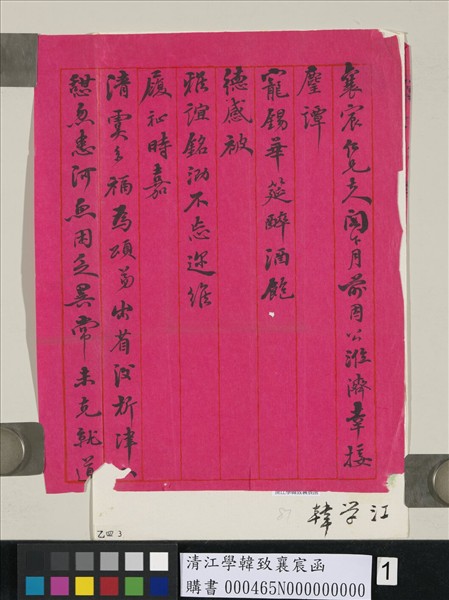 襄宸仁兄大人閣下月前因公淮濟幸接
麈譚
寵錫華筵醉酒飽
德感被
雅誼銘泐不忘邇維
履祉時嘉
清雲多福為頌弟出省後新津
悉河 困乏異常未克就道
江学韓
乙四3
清江學韓致襄宸函
購書 000465N000000000
1